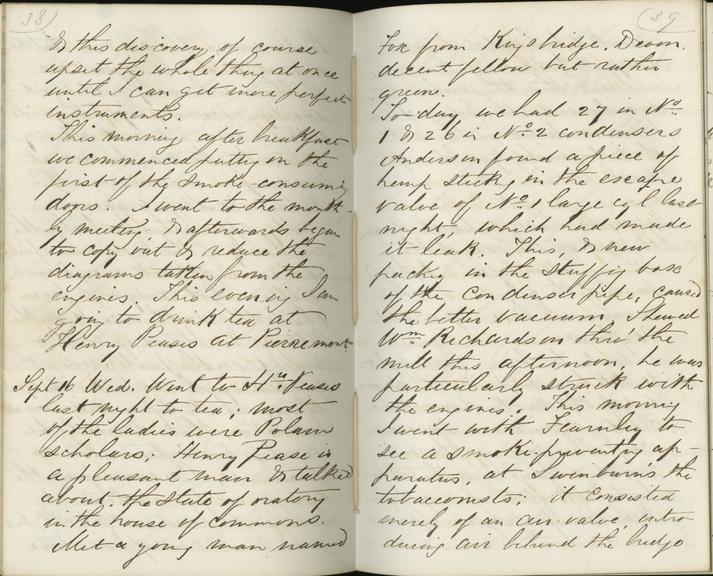 38)
& this discovery of course
upset the whole thing at once
until I can get more perfect
instruments.
This morning after breakfast
we commenced putting on the
first of the smoke-consuming
doors. I went to the month-
ly meeting & afterwards began
to copy out & reduce the
diagrams taken from the
engines. This evening I am
going to drink tea at
Henry Peases at Pierremont.
Sept 16 Wed. Went to Hy Peases
last night to tea; most
of the ladies were Polam
scholars; Henry Pease is
a pleasant man & talked
about the state of oratory
in the house of commons.
Met a young man named
(39
Fox from Kingsbridge, Devon.
decent fellow but rather
green.
To-day we had 27 in No
1 & 26 in No 2 condensers
Anderson found a piece of
hemp sticking in the escape
valve of No 1 large cyl last
night, which had made
it leak. This, & new
packing in the stuffing box
of the condenser pipe, caused
the better vacuum. Shewed
Wm Richardson thro' the
mill this afternoon, he was
particularly struck with
the engines. This morning
I went with Fearnley to
see a smoke-preventing ap-
paratus, at Swinburn's the
tobacconists; it consisted
merely of an air valve, intro
ducing air behind the bridge